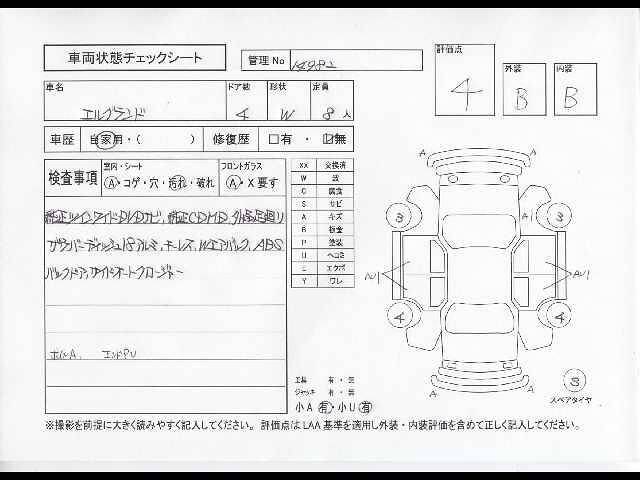 車両状態チェックシート
管理No 14982
評価点 4
外装 B
内装 B
車名 エルグランド
ドア数 4
形状 W
定員 8人
車歴 自家用・( )
修復歴 □有・☑無
検査事項
室内・シート
A・コゲ・穴・汚れ・破れ
フロントガラス
A・X要す
純正ツインワイドDVDナビ、純正CDMD、外品足廻り
グランバーディッシュ18アルミ、キーレス、Wエアバック、ABS
バックドア、サイドオートクロージャー
ホイルA、エンドPU
XX 交換済
W 波
C 腐食
S サビ
A キズ
B 板金
P 塗装
U ヘコミ
E エクボ
Y ワレ
A
A
3
A1
3
AU1
AU1
4
4
A
A
3
スペアタイヤ
工具 有・無
ジャッキ 有・無
小A 有・小U 有
※撮影を前提に大きく読みやすく記入してください。 評価点はLAA基準を適用し外装・内装評価を含めて正しく記入してください。